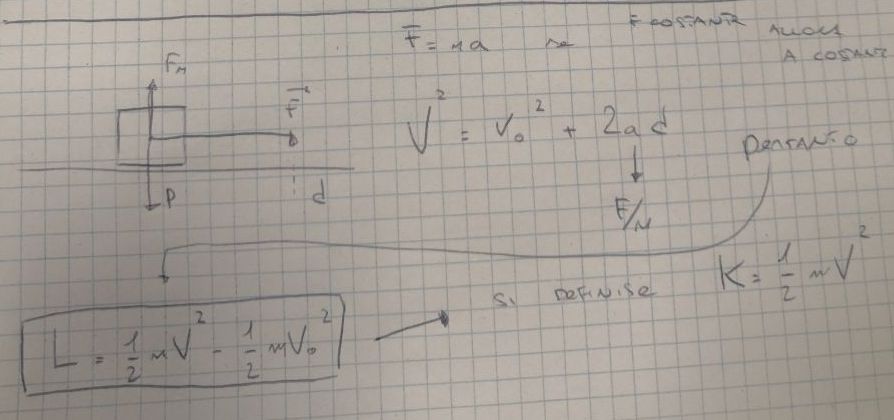 F = ma se F COSTANTE ALLORA
A COSTANTE
F_N
F
V² = V₀² + 2ad
PERTANTO
P
d
F/M
K = 1/2 mV²
SI DEFINISE
L = 1/2 mV² - 1/2 mV₀²